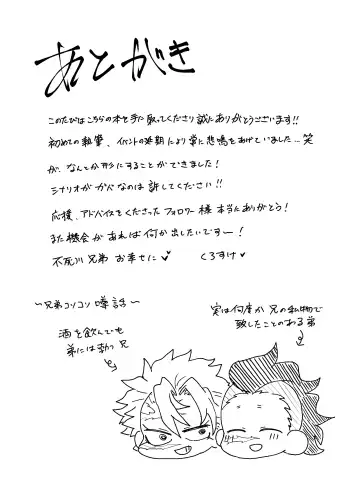 あとがき
このたびはこちらの本を手に取ってくださり誠にありがとうございます!!
初めての執筆、イベントの延期により常に悲鳴をあげていました…笑
が、なんとか形にすることができました!
シナリオがガバなのは許してください!!
応援、アドバイスをくださったフォロワー様本当にありがとう!
また機会があれば何か出したいですー!
不死川兄弟 お幸せに♥ くろすけ♥
〜兄弟コソコソ噂話〜
酒を飲んでも
弟には勃つ兄
実は何度か兄の私物で
致したことのある弟